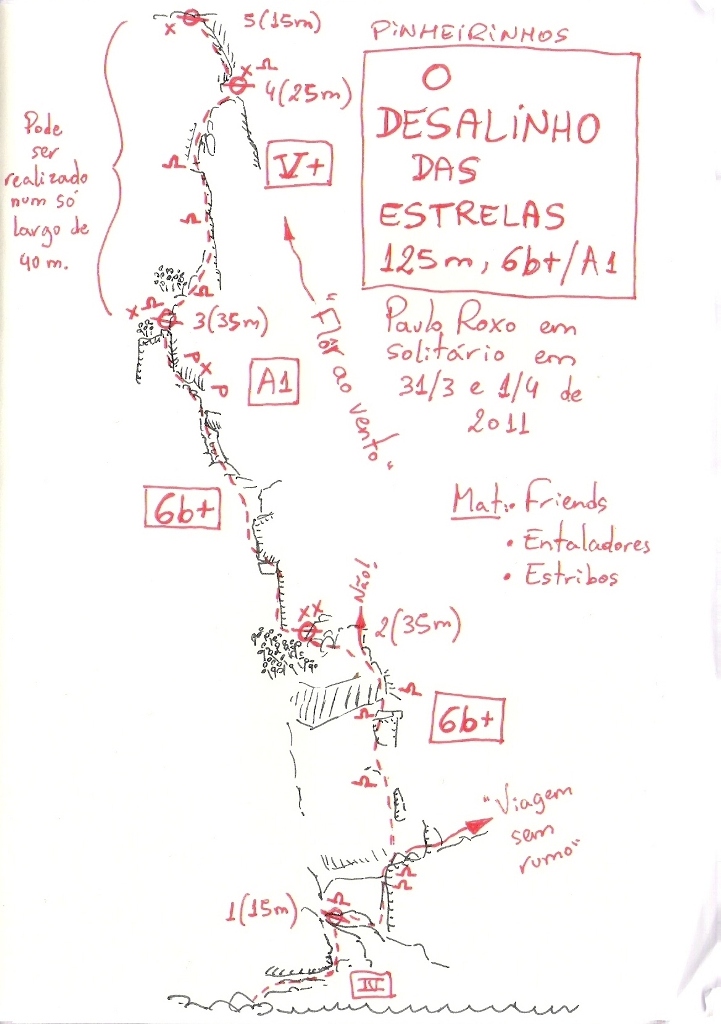 PINHEIRINHOS
O
DESALINHO
DAS
ESTRELAS
125m, 6b+/A1
Paulo Roxo em
solitário em
31/3 e 1/4 de
2011
Mat.: • Friends
• Entaladores
• Estribos
5(15m)
4(25m)
V+
Pode
ser
realizado
num só
largo de
40 m.
"Flôr ao vento"
3(35m)
A1
6b+
Não!
2(35m)
6b+
"Viagem
sem
rumo"
1(15m)
IV